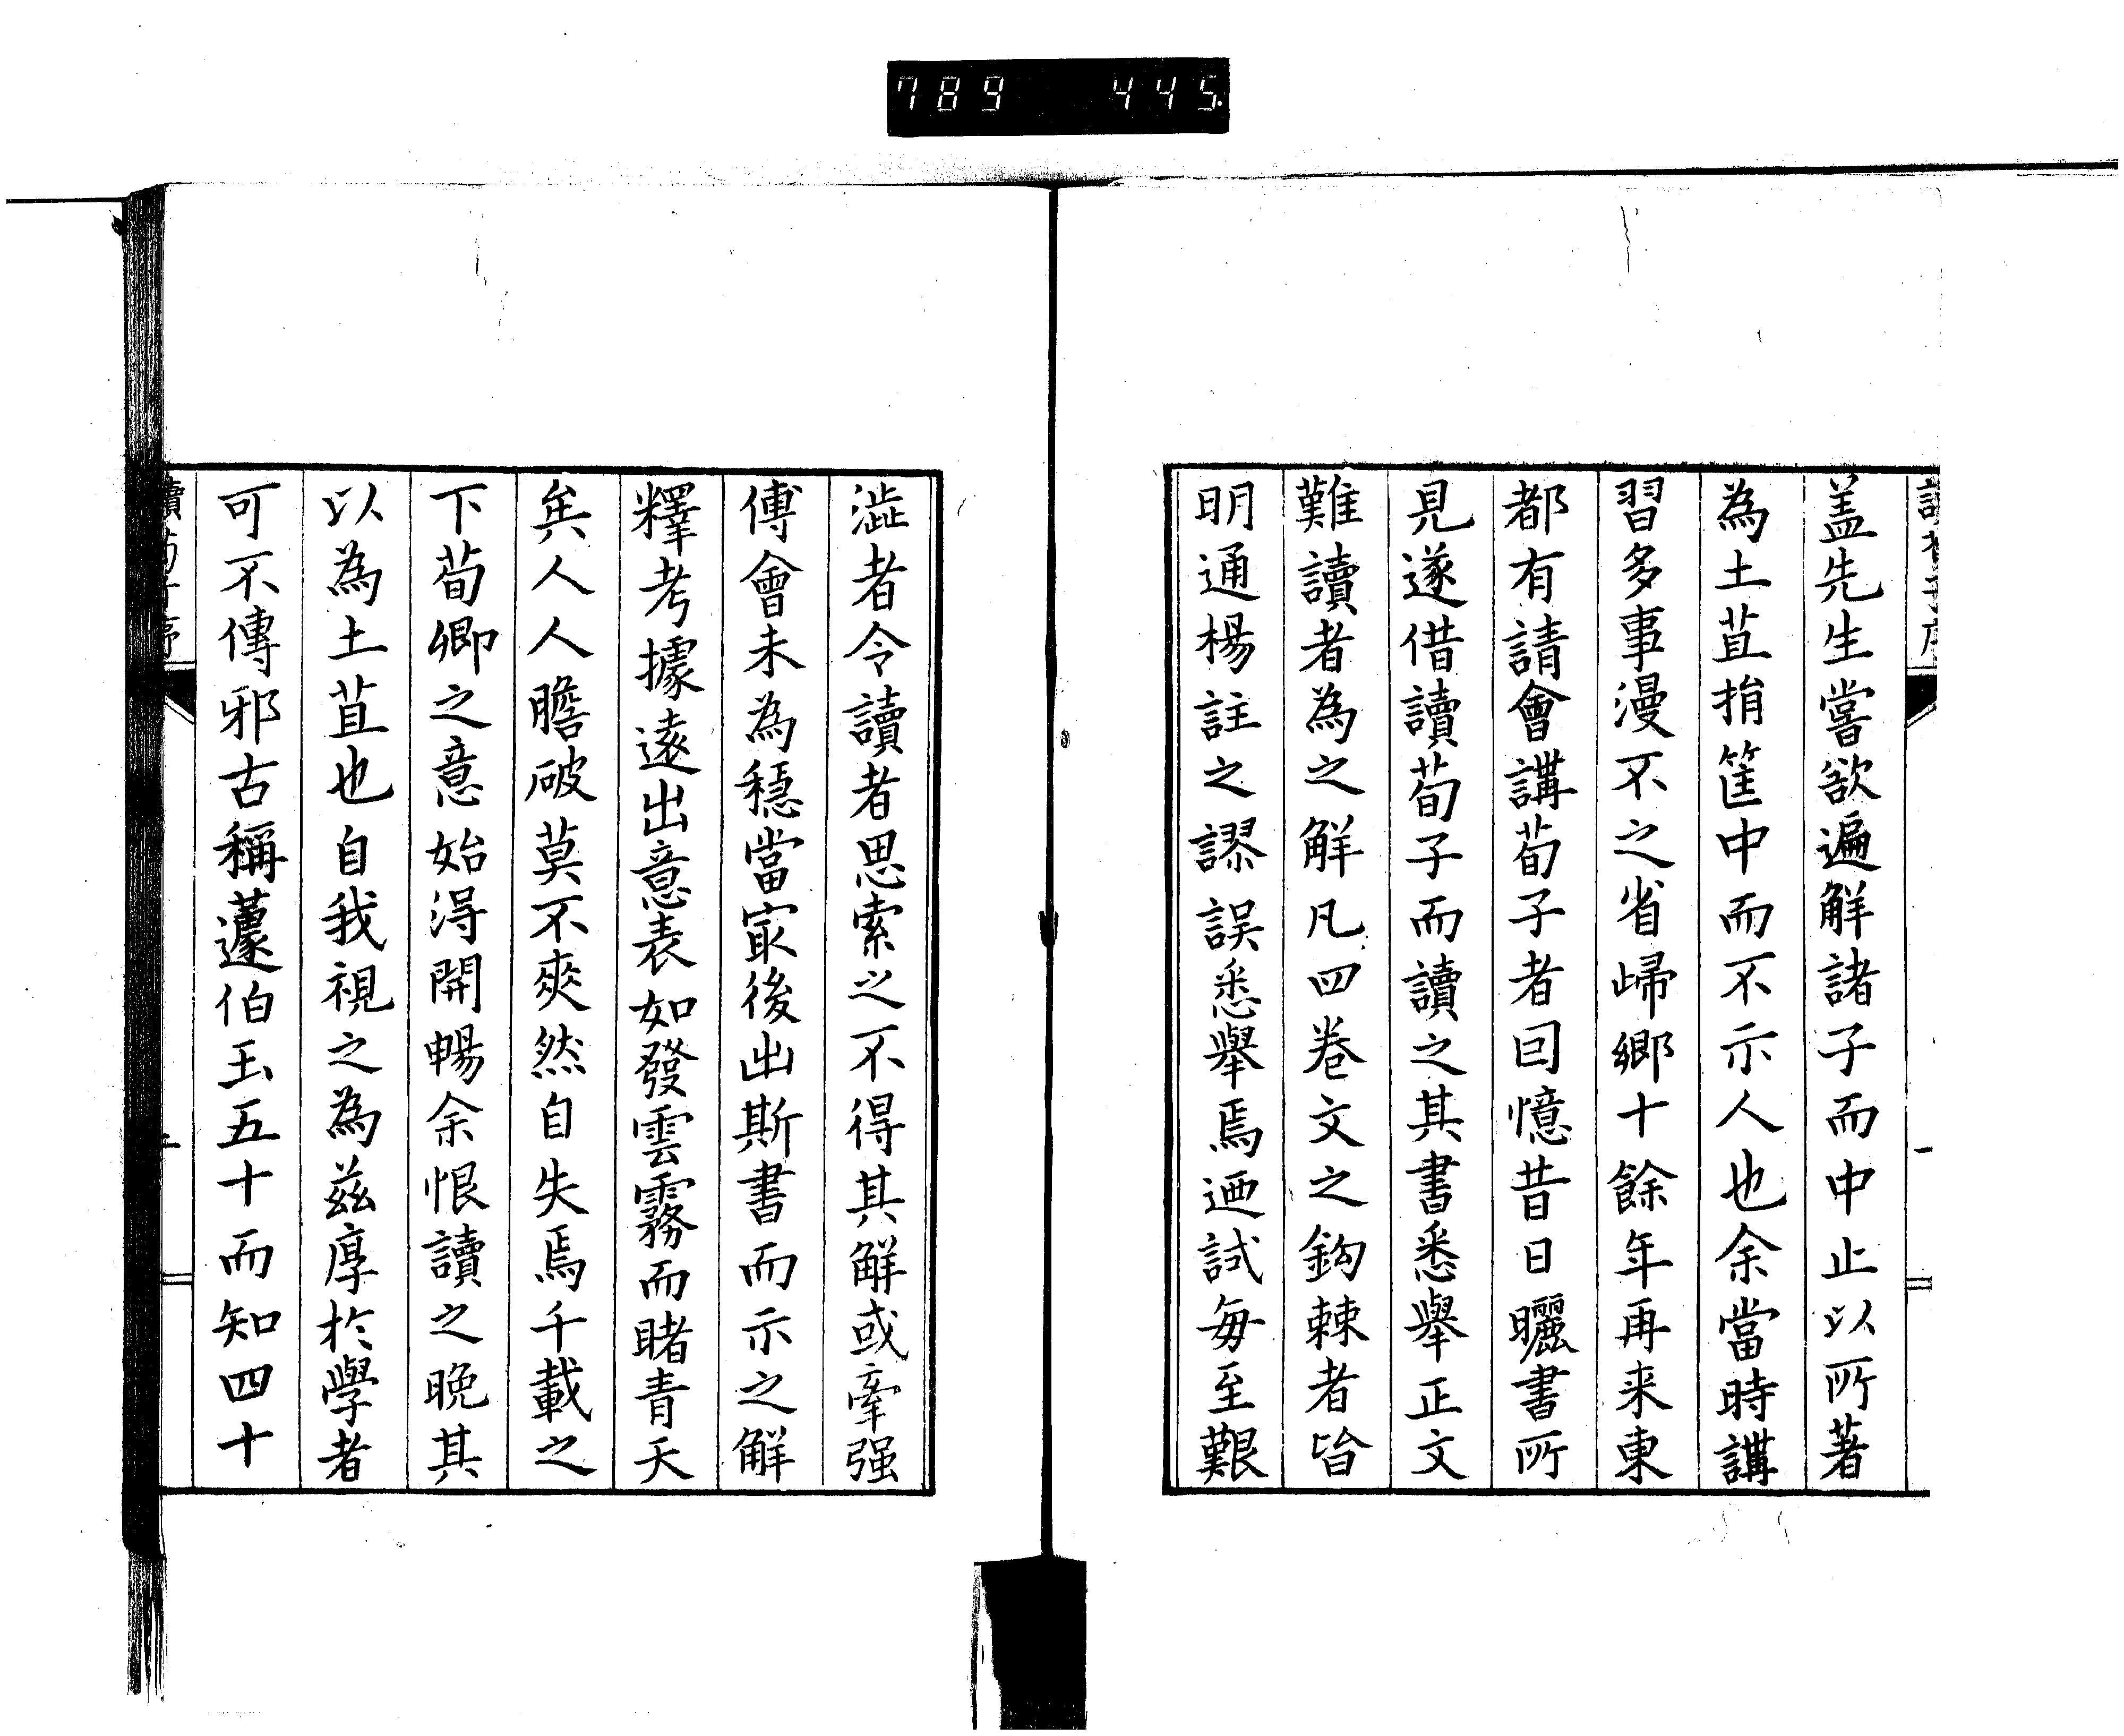 789 445.
盖先生嘗欲遍解諸子而中止以所著
為土苴捐筐中而不示人也余當時講
習多事漫不之省歸鄉十餘年再来東
都有請會講荀子者回憶昔日曬書所
見遂借讀荀子而讀之其書悉舉正文
難讀者為之解凡四卷文之鈎棘者皆
明通楊註之謬誤悉舉焉迺試每至艱
澁者令讀者思索之不得其解或牽强
傅會未為穩當㝡後出斯書而示之解
釋考據遠出意表如發雲霧而睹青天
矣人人膽破莫不爽然自失焉千載之
下荀卿之意始得開暢余恨讀之晚其
以為土苴也自我視之為茲厚於學者
可不傳邪古稱蘧伯玉五十而知四十
讀荀子序